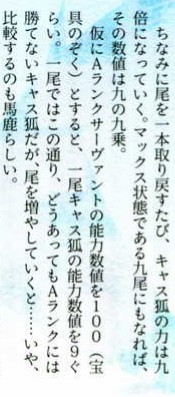 ちなみに尾を一本取り戻すたび、キャス狐の力は九
倍になっていく。マックス状態である九尾にもなれば、
その数値は九の九乗。
仮にAランクサーヴァントの能力数値を100（宝
具のぞく）とすると、一尾キャス狐の能力数値を9ぐ
らい。一尾ではこの通り、どうあってもAランクには
勝てないキャス狐だが、尾を増やしていくと……いや、
比較するのも馬鹿らしい。